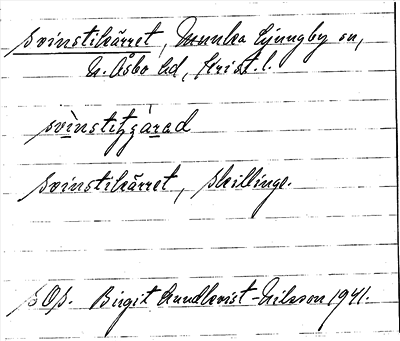 Svinstikärret, Munka Ljungby sn,
N. Åsbo hd, Krist. l.
svìnstitʒárad
Svinstikärret, Skillinge.
s Os. Birgit Lundkvist-Nilsson 1941.